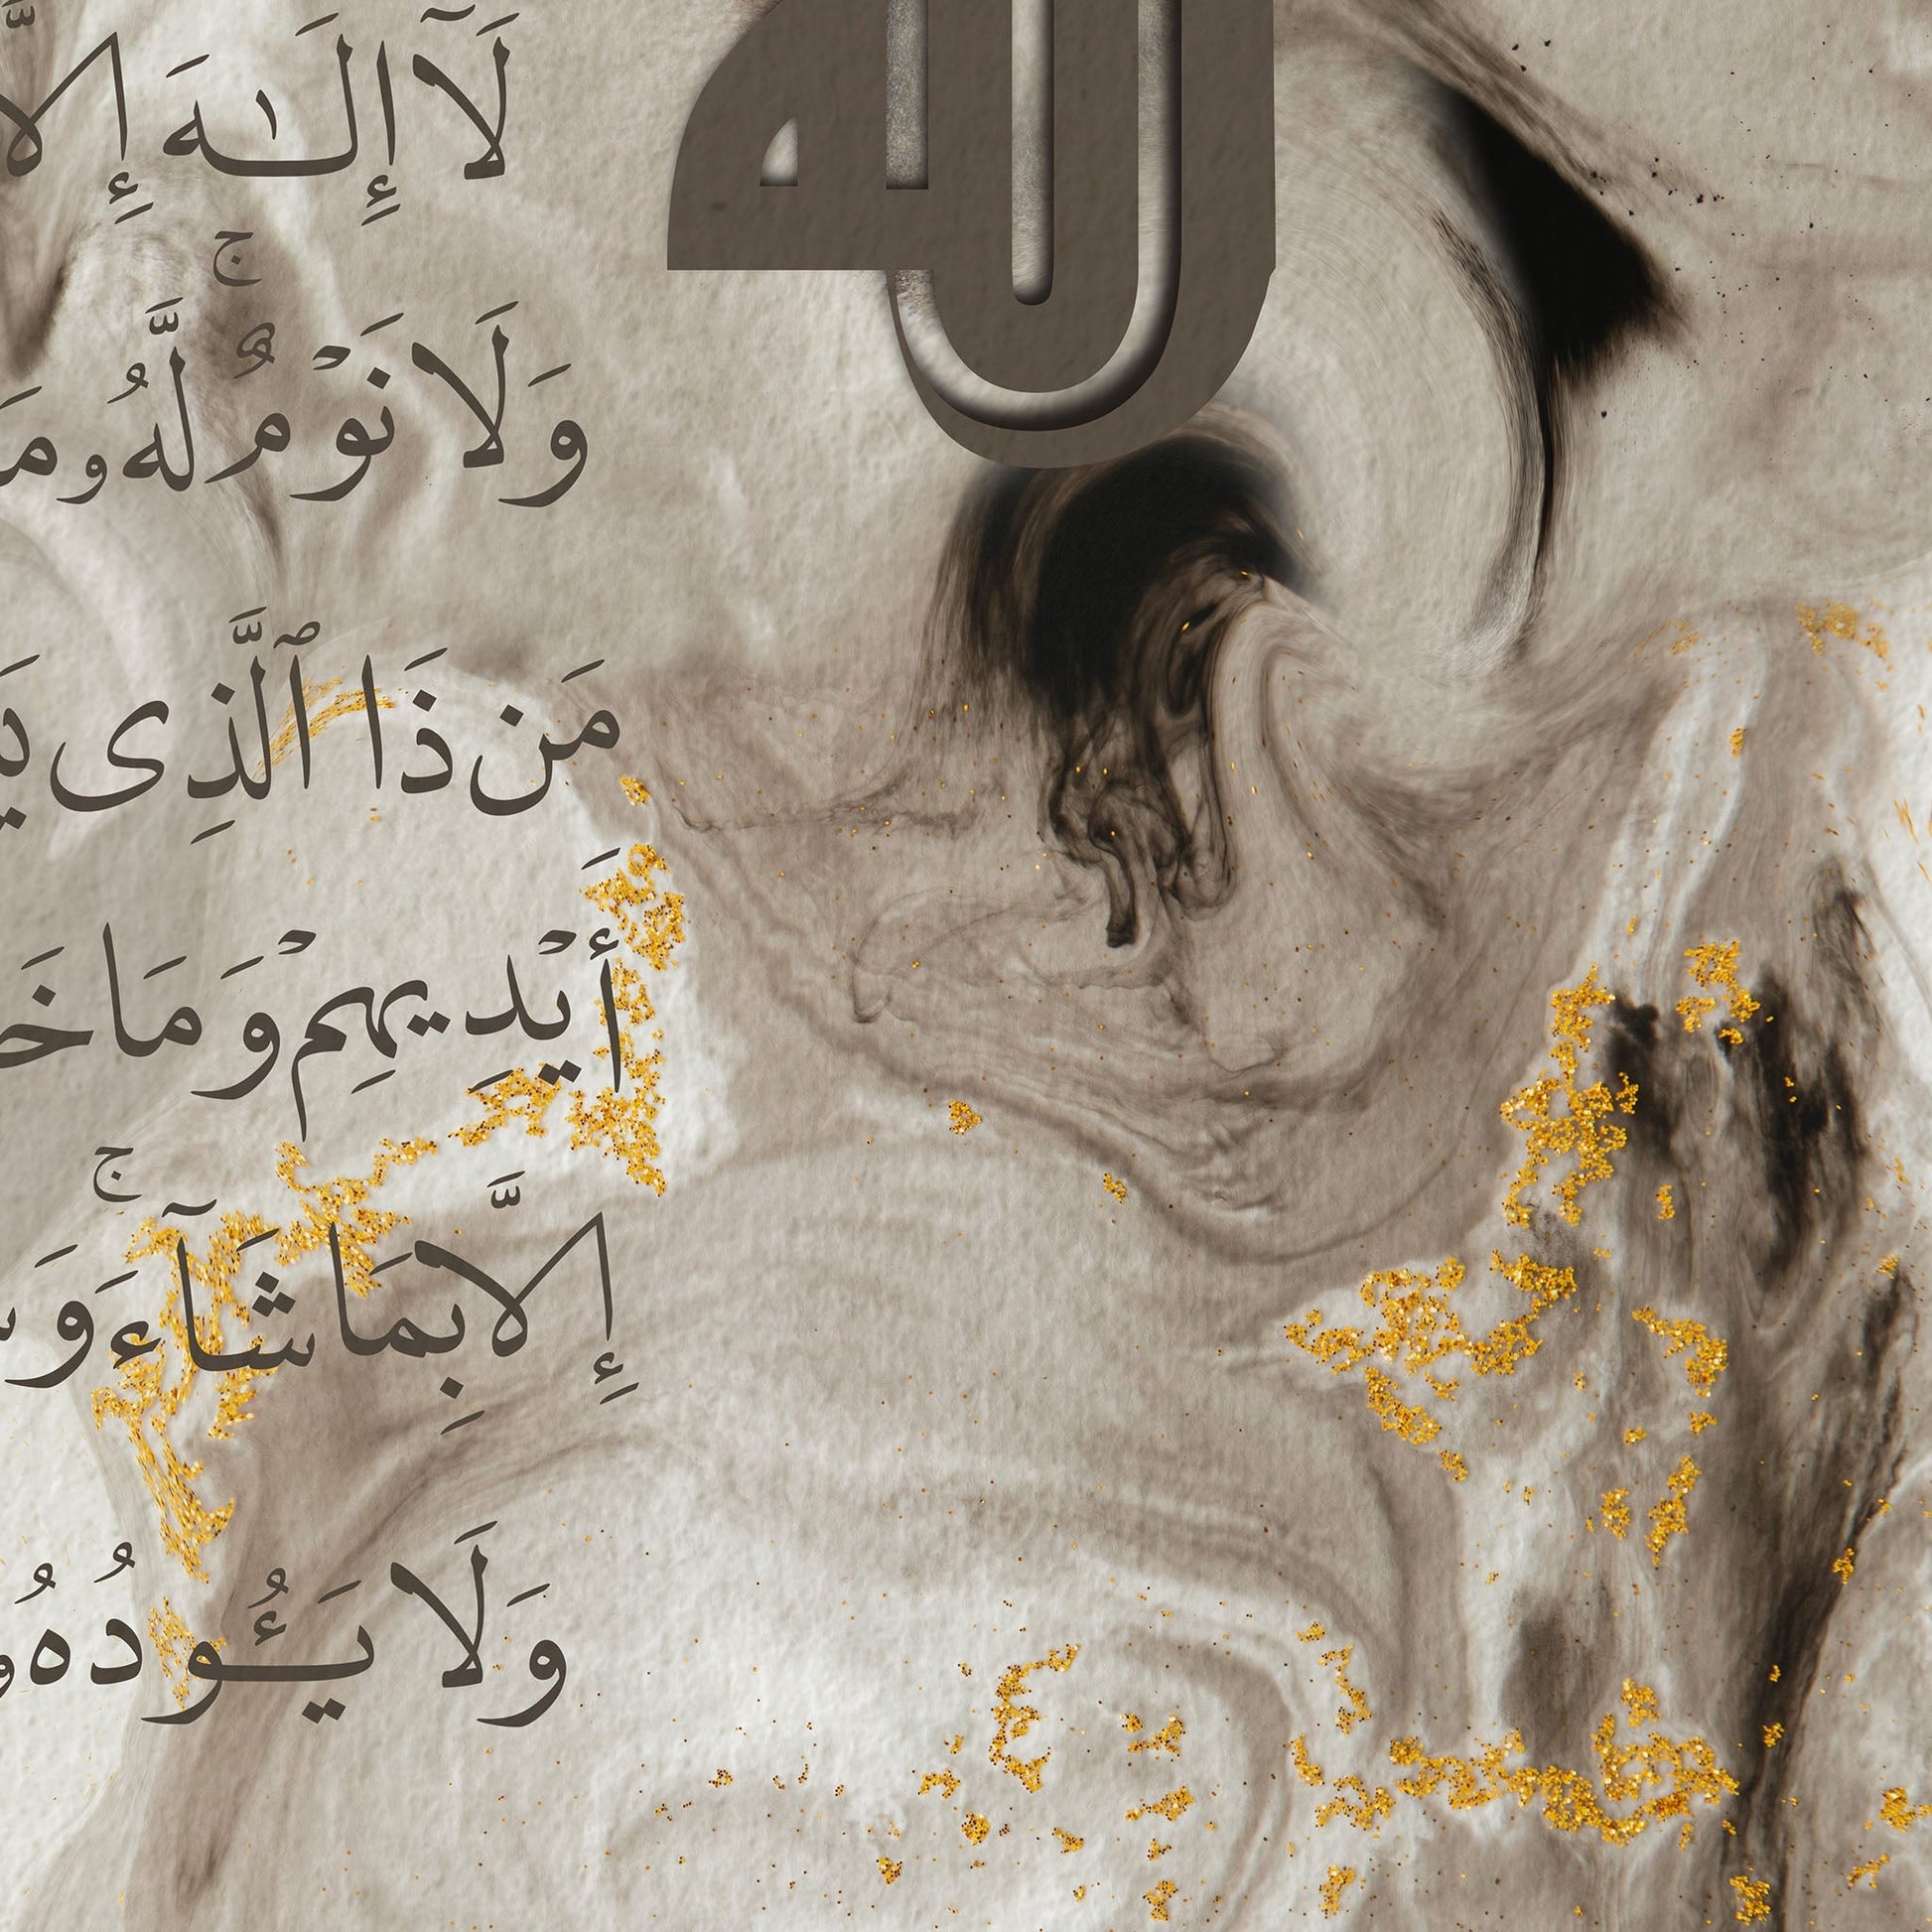 الله
لَآ إِلَـٰهَ إِلَّا
وَلَا نَوْمٌ ۚ لَّهُۥ مَا
مَن ذَا ٱلَّذِى
أَيْدِيهِمْ وَمَا
إِلَّا بِمَا شَآءَ ۚ
وَلَا يَـُٔودُهُۥ